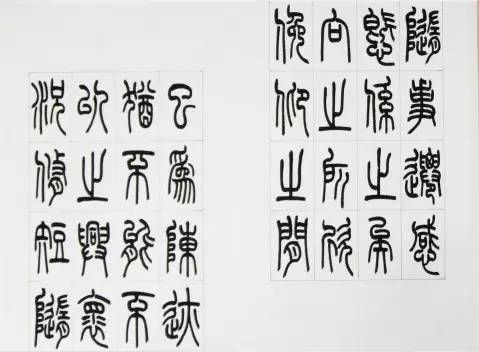 隨事遷感
慨係之矣
向之所欣
俛仰之間
已為陳迹
猶不能不
以之興懷
況脩短隨